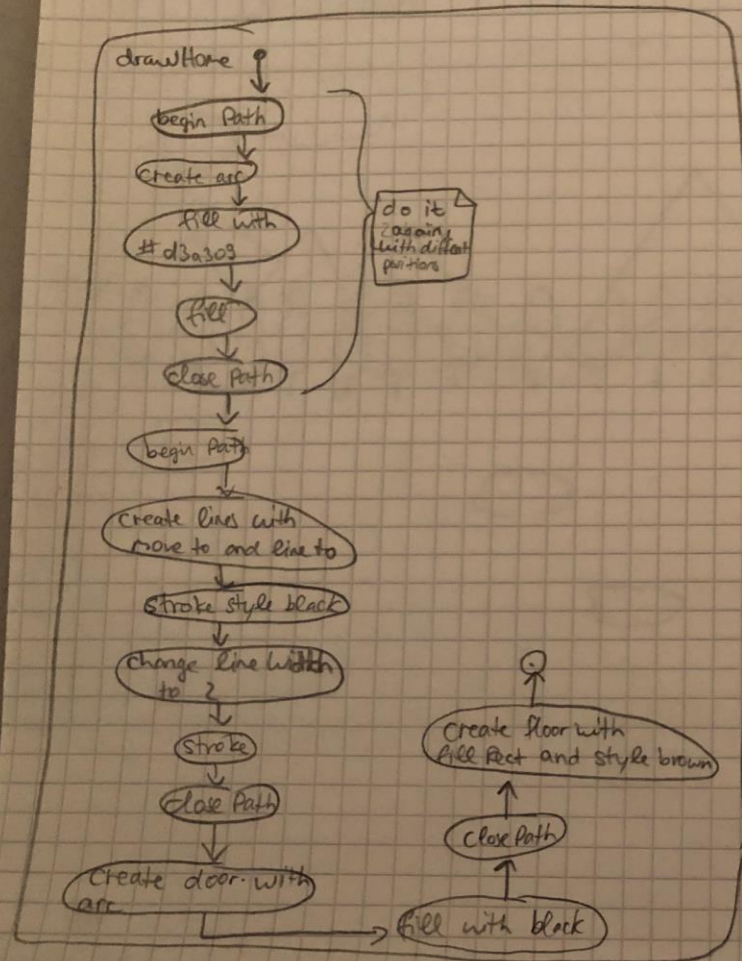 drawHome
begin Path
create arc
fill with
#d3a303
fill
close Path
do it
2 again,
with different
positions
begin Path
create lines with
move to and line to
stroke style black
change line width
to 2
stroke
close Path
create door with
arc
fill with black
close Path
create floor with
fill Rect and style brown